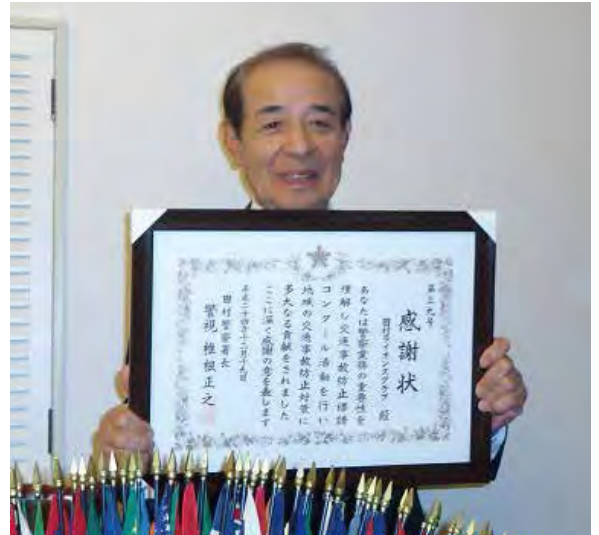 第三九号
感謝状
田村ライオンズクラブ 殿
あなたは警察業務の重要性を
理解し交通事故防止標語
コンクール活動を行い
地域の交通事故防止対策に
多大なる貢献をされました
ここに深く感謝の意を表します
平成二十四年十二月十九日
田村警察署長
警視 椎根正之